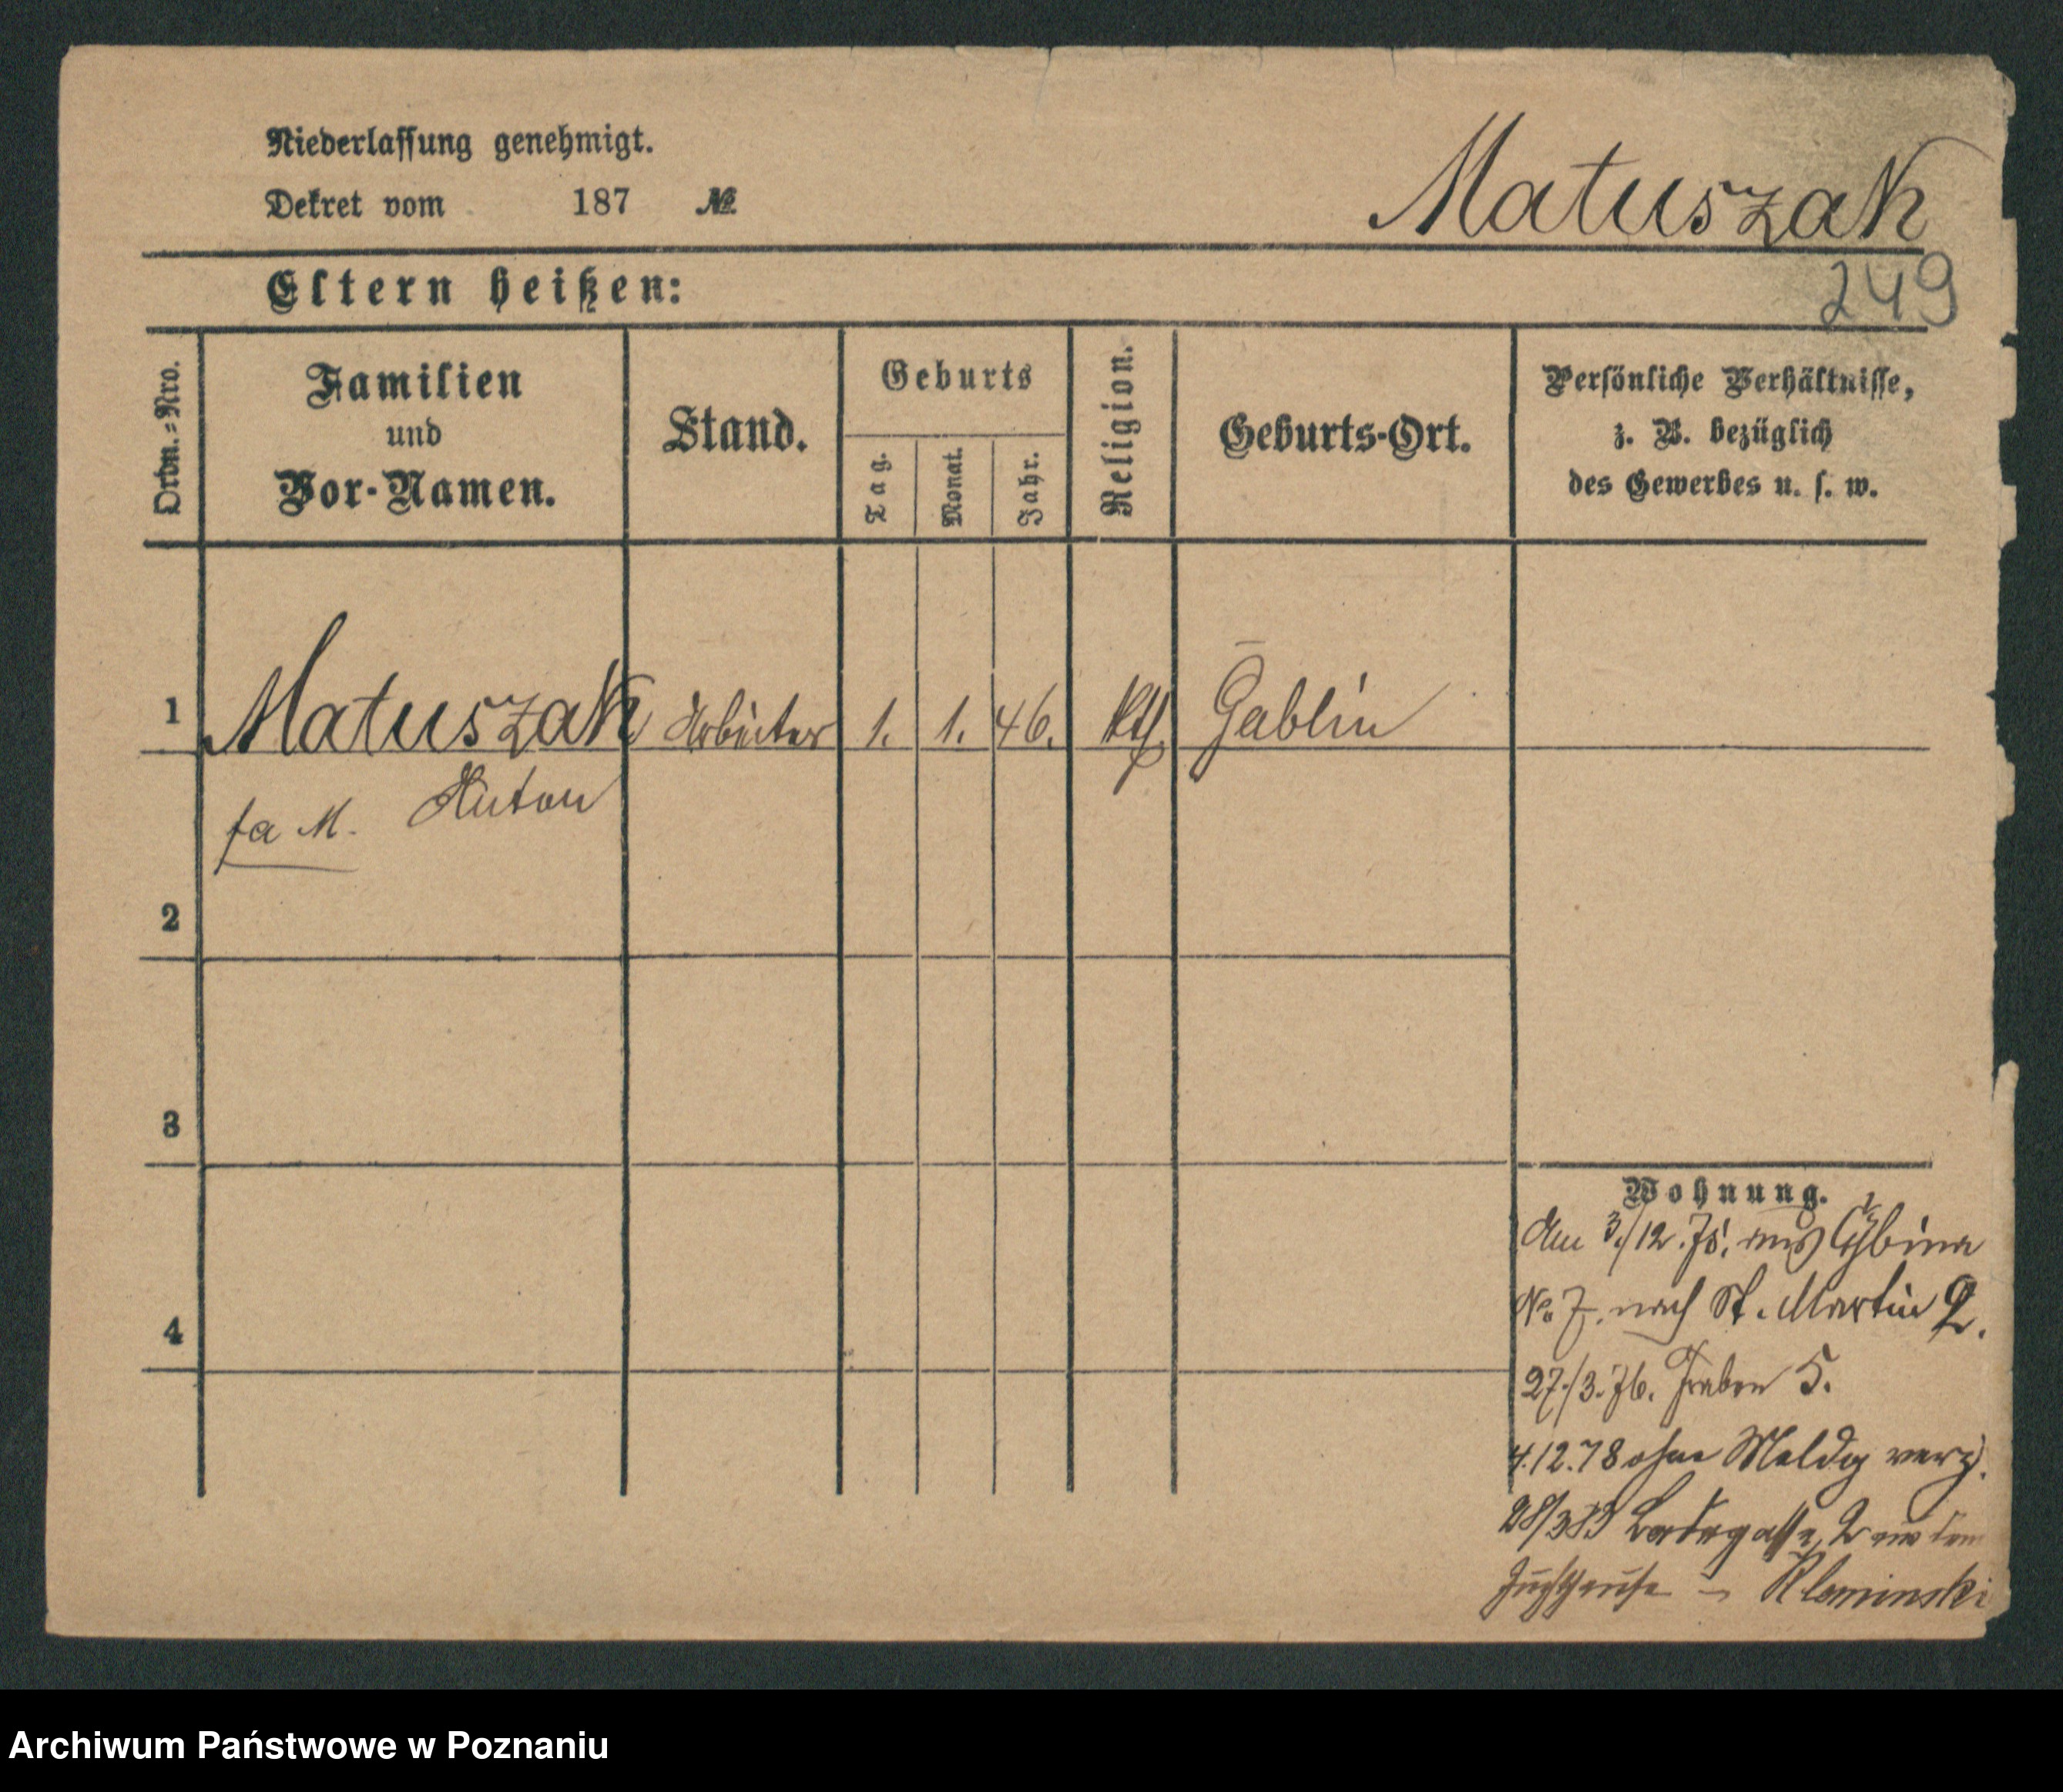 Niederlassung genehmigt.
Dekret vom 187 №
Matuszak
249
Eltern heißen:
Ordn.-Nro.
Familien
und
Vor-Namen.
Stand.
Geburts
Tag.
Monat.
Jahr.
Religion.
Geburts-Ort.
Persönliche Verhältnisse,
z. B. bezüglich
des Gewerbes u. s. w.
1 Matuszak Arbeiter 1. 1. 46. Kth. Gablin
fa M. Anton
2
3
4
Wohnung.
Am 3/12.75. aus
No 7. nach St. Martin 2.
27./3.76. Graben 5.
4.12.78 ohne Meldg verz.
28/3 83 2 aus dem
Zuchthause - Kleminski
Archiwum Państwowe w Poznaniu